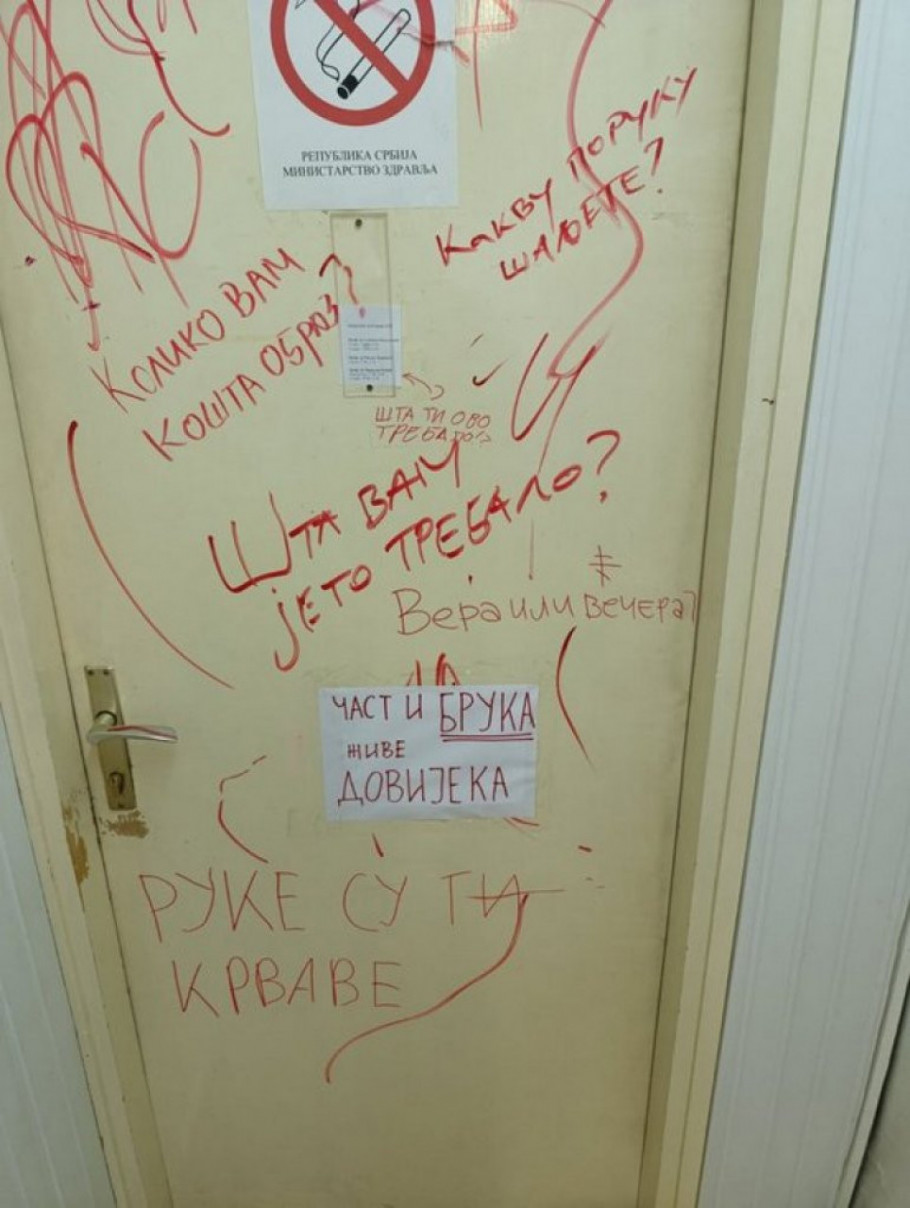 РЕПУБЛИКА СРБИЈА
МИНИСТАРСТВО ЗДРАВЉА
Какву ПОРУКУ
ШАЉЕТЕ?
КОЛИКО ВАМ
КОШТА ОБРАЗ?
ШТА ТИ ОВО
ТРЕБАЛО?
ШТА ВАМ
ЈЕ ТО ТРЕБАЛО?
Вера или вечера?
ЧАСТ И БРУКА
ЖИВЕ
ДОВИЈЕКА
РУКЕ СУ ТИ
КРВАВЕ